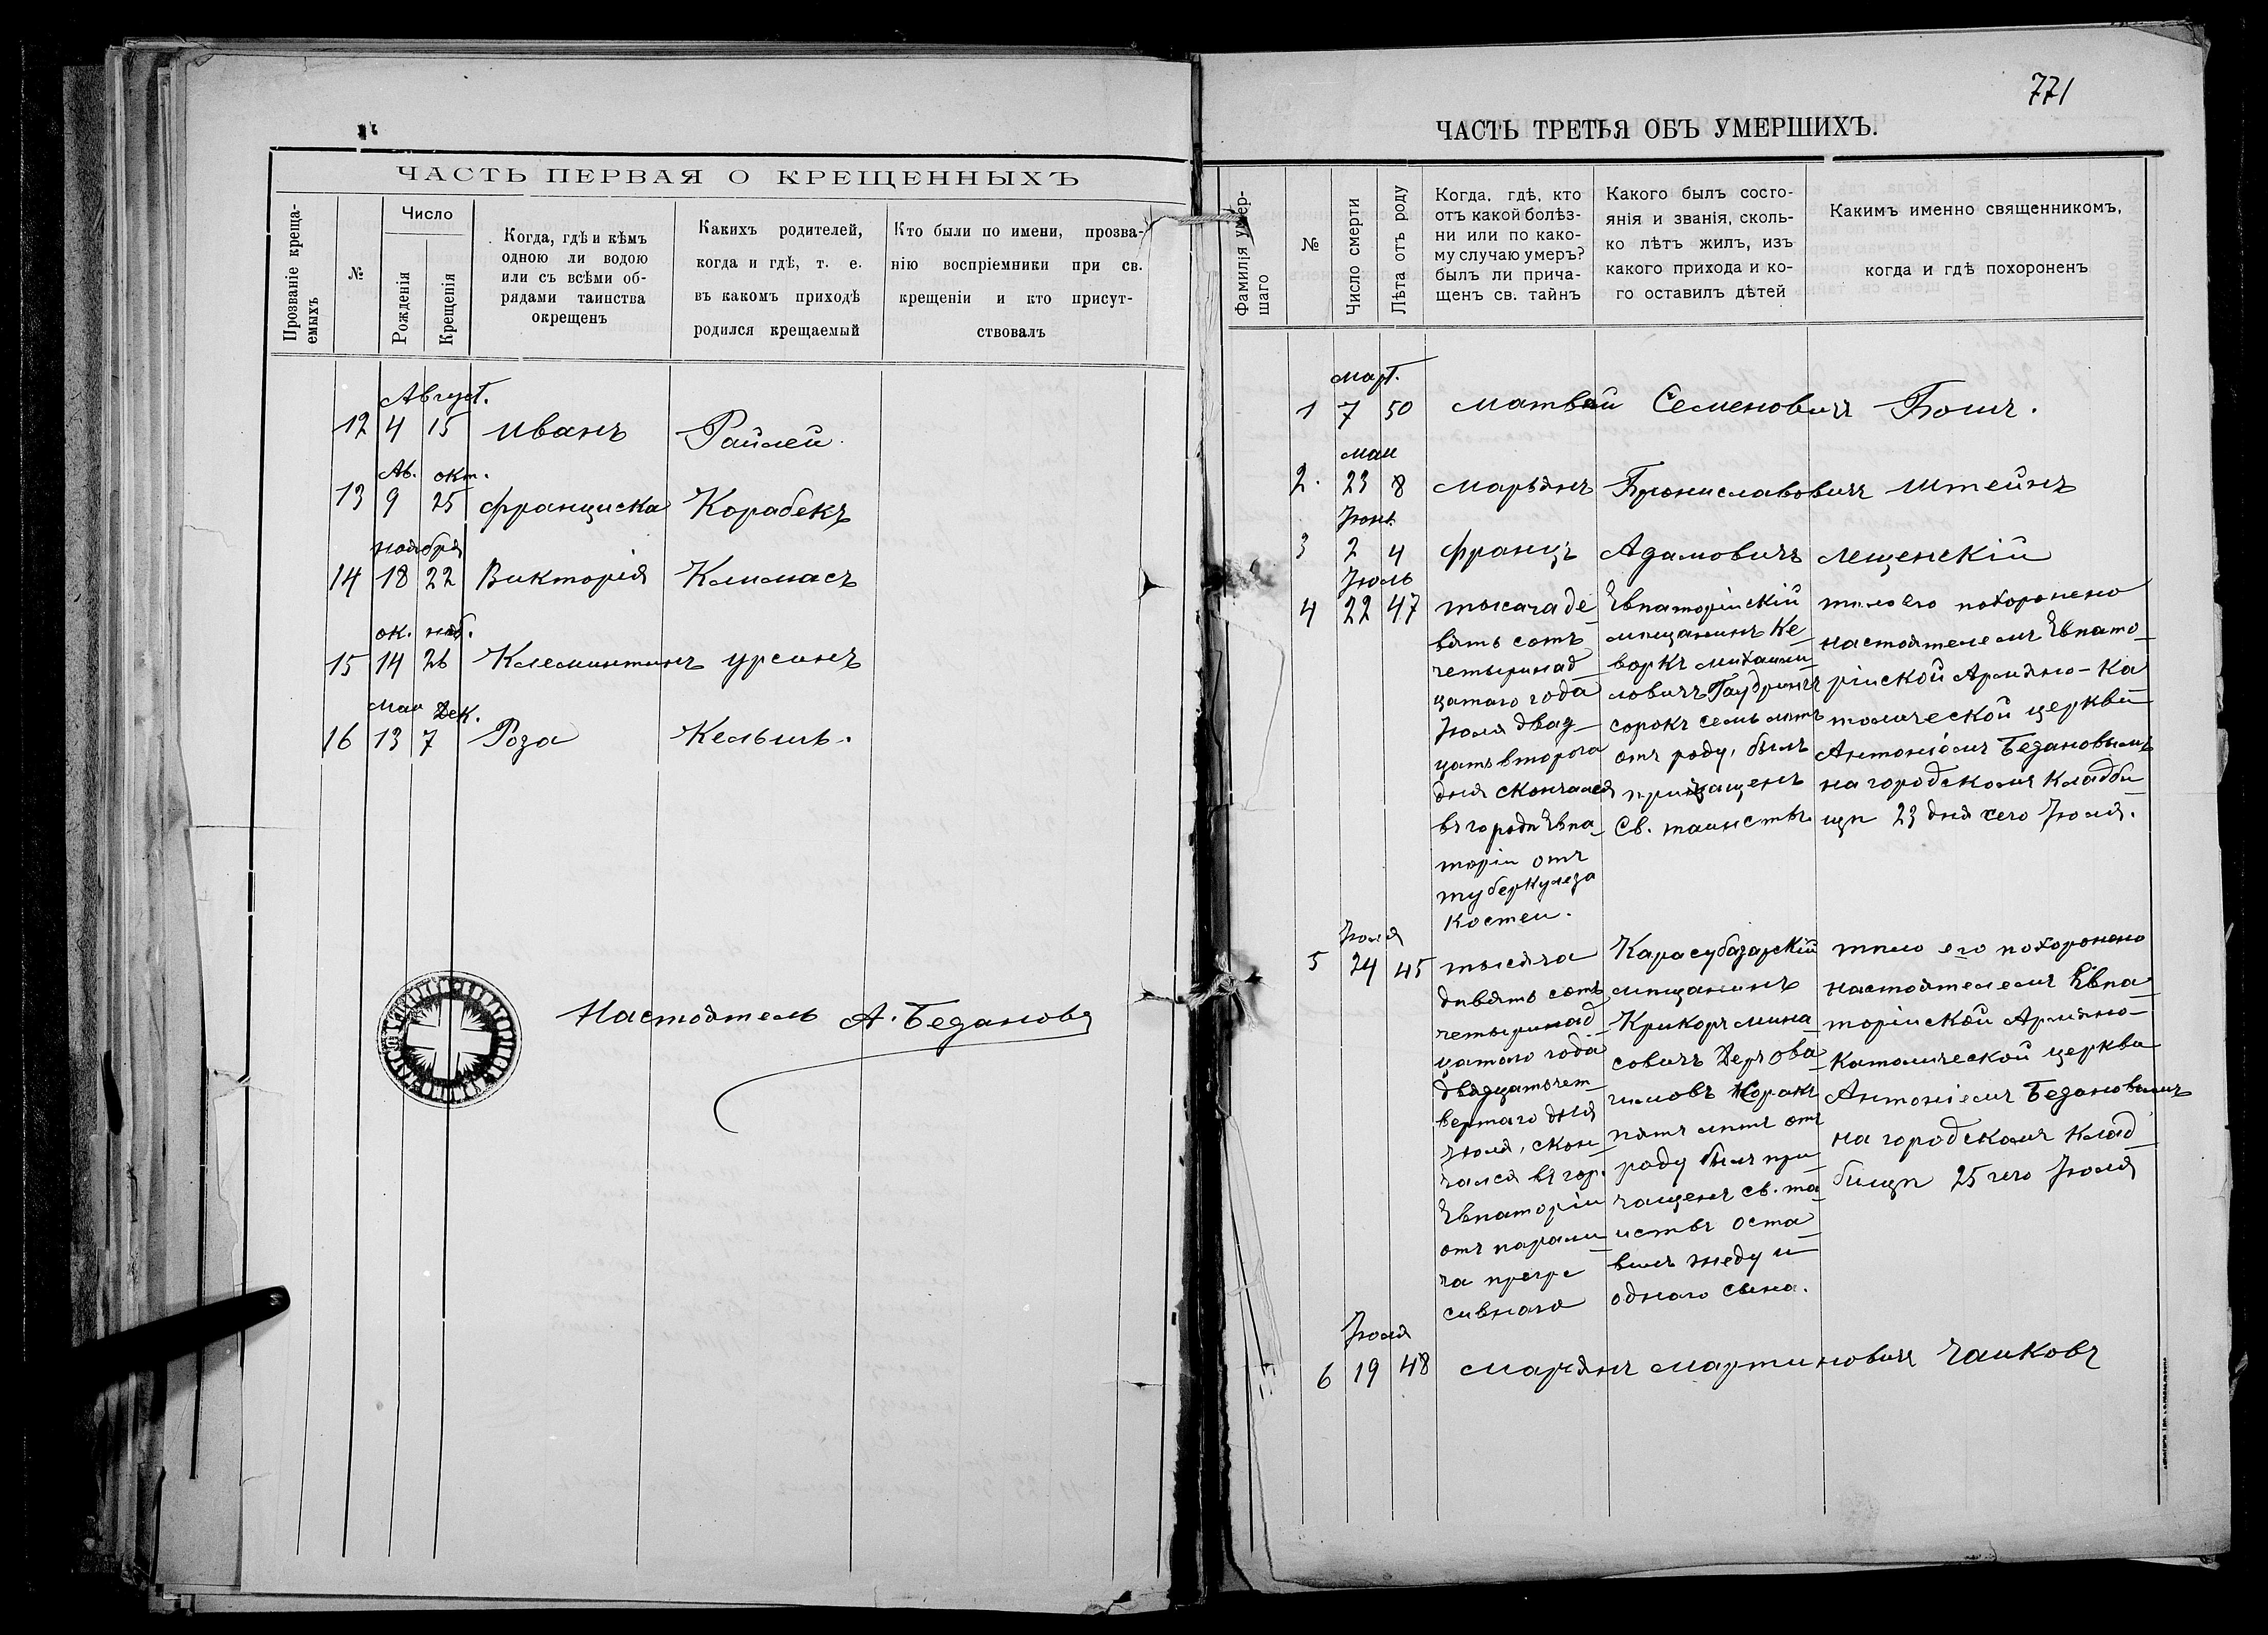 ЧАСТЬ ПЕРВАЯ О КРЕЩЕННЫХЪ
Прозваніе креща-
емыхъ
№
Число
Рожденія
Крещенія
Когда, гдѣ и кѣмъ
одною ли водою
или съ всѣми об-
рядами таинства
окрещенъ
Какихъ родителей,
когда и гдѣ, т. е.
въ какомъ приходѣ
родился крещаемый
Кто были по имени, прозва-
нію воспріемники при св.
крещеніи и кто присут-
ствовалъ
Август.
12 4 15 Иванъ Райлей
Ав. окт.
13 9 25 Франциска Корабекъ
ноября
14 18 22 Викторія Климасъ
ок. нояб.
15 14 26 Клементинъ Урсинъ
Маи Дек.
16 13 7 Роза Кельшъ.
Настоятель А. Бедановъ
771
ЧАСТЬ ТРЕТЬЯ ОБЪ УМЕРШИХЪ.
Фамилія умер-
шаго
№
Число смерти
Лѣта отъ роду
Когда, гдѣ, кто
отъ какой болѣз-
ни или по како-
му случаю умеръ?
былъ ли прича-
щенъ св. тайнъ
Какого былъ состо-
янія и званія, сколь-
ко лѣтъ жилъ, изъ
какого прихода и ко-
го оставилъ дѣтей
Какимъ именно священникомъ,
когда и гдѣ похороненъ
март.
1 7 50 Матвѣй Семеновичъ Бошъ.
маи
2. 23 8 Марьянъ Брониславовичъ Штейнъ
Іюнь
3 2 4 Францъ Адамовичъ Лещенскій
Іюль
4 22 47
тысяча де
вять сотъ
четырнад
цатаго года
Іюля двад—
цать второго
дня скончался
въ городѣ Евпа
торіи отъ
туберкулеза
костеи.
Евпаторійскій
мѣщанинъ Ке
воркъ Михаили
ловичъ
сорокъ семь лѣтъ
отъ роду, былъ
причащенъ
Св. таинствъ
тѣло его похоронено
настоятелемъ Евпато
рійской Армяно-Ка
толической церкви
Антоніемъ Бедановымъ
на городскомъ кладби
щѣ 23 дня сего Іюля.
Іюля
5 24 45
тысяча
дѣвять сотъ
четырнад
цатаго года
двадцать чет—
вертаго дня
Іюля, скон
чался въ гор.
Евпаторіи
отъ парали
ча прегре
сивнаго
Карасубазарскій
мѣщанинъ
Крикоръ Мина
совичъ Деръ Ова
гимовъ сорокъ
пять лѣтъ отъ
роду былъ при
чащенъ св. та
инствъ оста
вилъ жеду и
одного сына.
тѣло его похоронено
настоятелемъ Евпа
торіиской Армяно—
Католической церкви
Антоніемъ Бедановымъ
на городскомъ клад
бищѣ 25 сего Іюля
Іюля
6 19 48 Марьянъ Мартиновичъ Чаиковъ